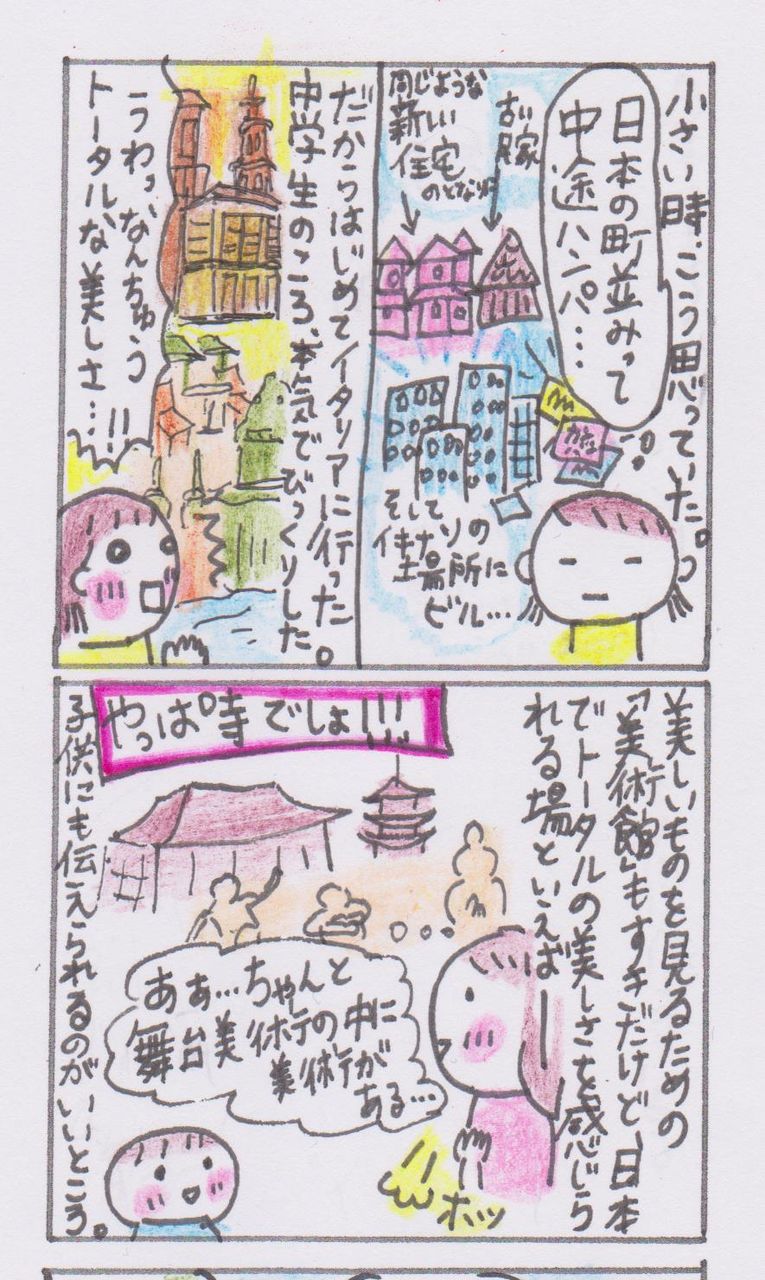 小さい時、こう思っていた。
日本の町並みって
中途ハンパ…
古い家
同じような
新しい
住宅
のとなりに
そして
イキナリの
場所に
ビル…
だからはじめてイタリアに行った
中学生のころ、本気でびっくりした。
うわっなんちゅう
トータルな美しさ…!!
美しいものを見るための
「美術館」もすきだけど、日本
でトータルの美しさを感じら
れる場といえば
やっぱ寺でしょ!!!
ああ…ちゃんと
舞台美術の中に
美術が
ある…
ホッ
子供にも伝えられるのがいいところ。